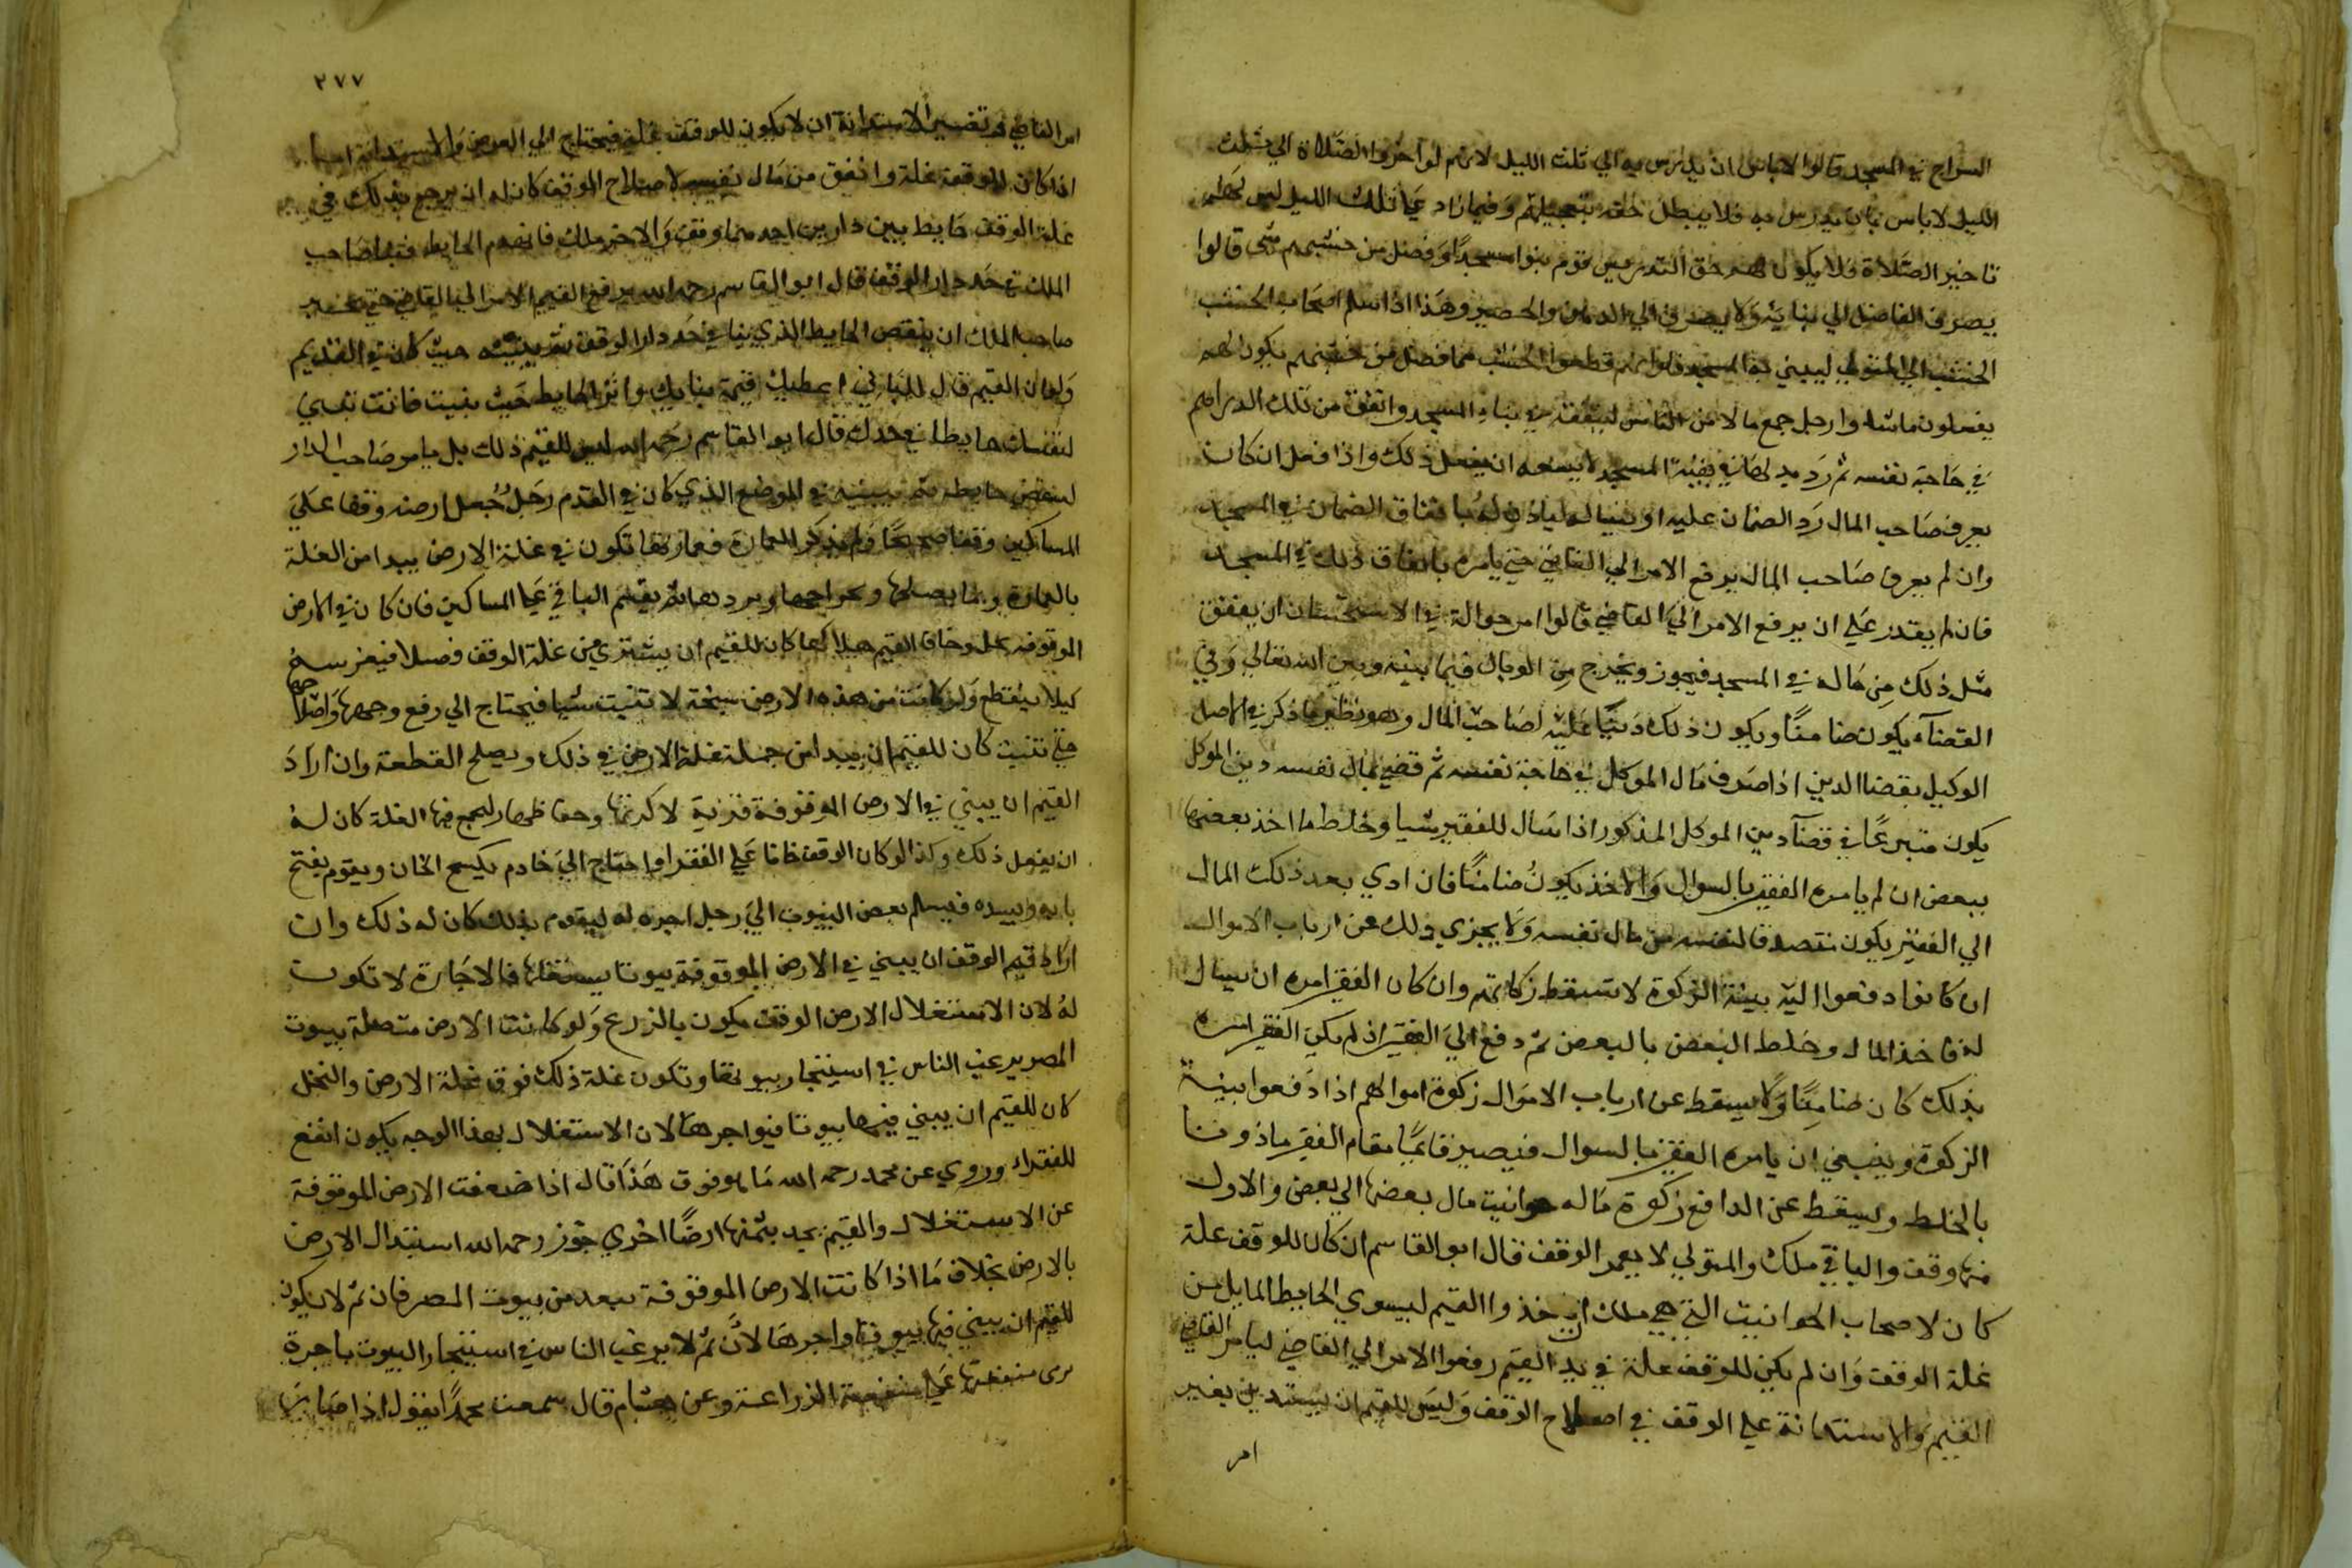 السراج في المسجد قالوا لاباس ان يدرس به الي ثلث الليل لانهم لو اخروا الصلاة الي ثلث
الليل لا باس بان يدرس به فلا يبطل حقه بتعجيلهم وفيما زاد علي ثلث الليل ليس لهم
تاخير الصلاة فلا يكون لهم حق التدريس قوم بنوا مسجدًا وفضل من خشبهم شي قالوا
يصرف الفاضل الي بنايه ولا يصرف الي الدهن والحصير وهذا اذا سلم اصحاب الخشب
الخشب الي المتولي ليبني به المسجد فلو انهم قطعوا الخشب مما فضل من خشبهم يكون لهم
يفعلون ماشاوا رجل جمع مالا من الناس لينفقه في بناء المسجد وانفق من تلك الدراهم
في حاجة نفسه ثم رد بدلها في بقية المسجد لا يسعه ان يفعل ذلك واذا فعل ان كان
يعرف صاحب المال رد الضمان عليه او يساله لياذن له بانفاق الضمان في المسجد
وان لم يعرف صاحب المال يرفع الامر الي القاضي حتي يامره بانفاق ذلك في المسجد
فان لم يقدر علي ان يرفع الامر الي القاضي قالوا امرجوا له في الاستحسان ان ينفق
مثل ذلك من ماله في المسجد فيجوز ويخرج من الوبال فيما بينه وبين الله تعالي وفي
القضآء يكون ضامنًا ويكون ذلك دينًا عليه لصاحب المال وهو نظير ما ذكر في الاصل
الوكيل بقضا الدين اذا صرف مال الموكل في حاجة نفسه ثم قضي بمال نفسه دين الموكل
يكون متبرعًا في قضآ دين الموكل المذكور اذا سال للفقير شيا وخلط ما اخذ بعضها
ببعض ان لم يامره الفقير بالسوال والاخذ يكون ضامنًا فان ادي بعد ذلك المال
الي الفقير يكون متصدقا لنفسه من مال نفسه ولا يجزي ذلك عن ارباب الاموال
ان كانوا دفعوا اليه بينة الزكوة لا تسقط زكاتهم وان كان الفقير امره ان يسال
له فاخذ المال وخلط البعض بالبعض ثم دفع الي الفقير اذ لم يكن الفقير امره
بذلك كان ضامنًا ولا يسقط عن ارباب الاموال زكوة اموالهم اذا دفعوا بينة
الزكوة وينبغي ان يامره الفقير بالسوال فيصير قايمًا مقام الفقير ماذونا
بالخلط ويسقط عن الدافع زكوة ماله حوانيت مال بعضها الي بعض والاول
منها وقف والباقي ملك والمتولي لا يعمر الوقف قال ابو القاسم ان كان للوقف غلة
كان لاصحاب الحوانيت التي هي ملك ان ياخذوا القيم ليسوي الحايط المايل من
غلة الوقف وان لم يكن للوقف غلة في يد القيم رفعوا الامر الي القاضي ليامر القاضي
القيم والاستدانة علي الوقف في اصلاح الوقف وليس للقيم ان يستدين بغير
امر
٢٧٧
امر القاضي وتفسير الاستدانة ان لا يكون للوقف غلة فيحتاج الي القرض والاستدانة اما
اذا كان للوقف غلة وانفق من مال نفسه لاصلاح الوقف كان له ان يرجع بذلك في
غلة الوقف حايط بين دارين احدهما وقف والاخر ملك فانهدم الحايط فبنا صاحب
الملك في حد دار الوقف قال ابو القاسم رحمه الله يرفع القيم الامر الي القاضي حتي يجبر
صاحب الملك ان ينقض الحايط الذي بناه في حد دار الوقف ثم يبنيه حيث كان في القديم
ولو ان القيم قال للباني اعطيك قيمة بنايك واترك الحايط حيث بنيت فانت تبني
لنفسك حايطا في حدك قال ابو القاسم رحمه الله ليس للقيم ذلك بل يامر صاحب الدار
لينقض حايطه ثم يبنيه في الموضع الذي كان في القدم رجل جعل ارضه وقفا علي
المساكين وقفا صحيحًا ولم يذكر العمارة فعمارتها تكون في غلة الارض يبدا من الغلة
بالعمارة وبما يصلحها وبخراجها وبردها ثم يقسم الباقي علي المساكين فان كان في الارض
الموقوفه نخل وخاف القيم هلاكها كان للقيم ان يشتري من غلة الوقف فصلا فيغرسه
كيلا ينقطع ولو كانت من هذه الارض سبخة لا تنبت شيا فيحتاج الي رفع وجهها واصلاحها
حتي تنبت كان للقيم ان يبدا من جملة غلة الارض في ذلك ويصلح القطعة وان اراد
القيم ان يبني في الارض الموقوفة قرية لاكرتها وحفاظها ليجمع فيها الغلة كان له
ان يفعل ذلك وكذا لو كان الوقف خانا علي الفقرا واحتاج الي خادم يكسح الخان ويقوم بفتح
بابه ويسده فيسلم بعض البيوت الي رجل اجره له ليقوم بذلك كان له ذلك وان
اراد قيم الوقف ان يبني في الارض الموقوفة بيوتا يستغلها فالاجارة لا تكون
له لان الاستغلال الارض الوقف يكون بالزرع ولو كانت الارض متصلة ببيوت
المصر يرغب الناس في استيجار بيوتها وتكون غلة ذلك فوق غلة الارض والنخل
كان للقيم ان يبني فيها بيوتا فيواجرها لان الاستغلال بهذا الوجه يكون انفع
للفقراء وروي عن محمد رحمه الله ما هو فوق هذا قال اذا ضعفت الارض الموقوفة
عن الاستغلال والقيم يجد بثمنها ارضًا اخري جوز رحمه الله استبدال الارض
بالارض بخلاف ما اذا كانت الارض الموقوفة ببعد من بيوت المصر فان ثم لا يكون
للقيم ان يبني فيها بيوتا واجرها لان ثم لا يرغب الناس في استيجار البيوت باجرة
يربي منفعتها علي منفعة الزراعة وعن هشام قال سمعت محمدًا يقول اذا صارت